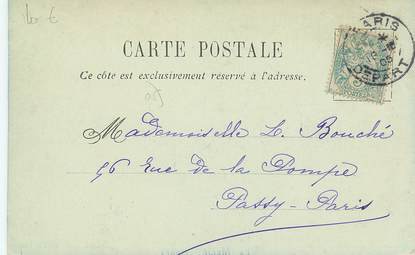 CARTE POSTALE
Ce côté est exclusivement réservé à l'adresse.
PARIS
DEPART
Mademoiselle L. Bouché
56 Rue de la Pompe
Passy-Paris